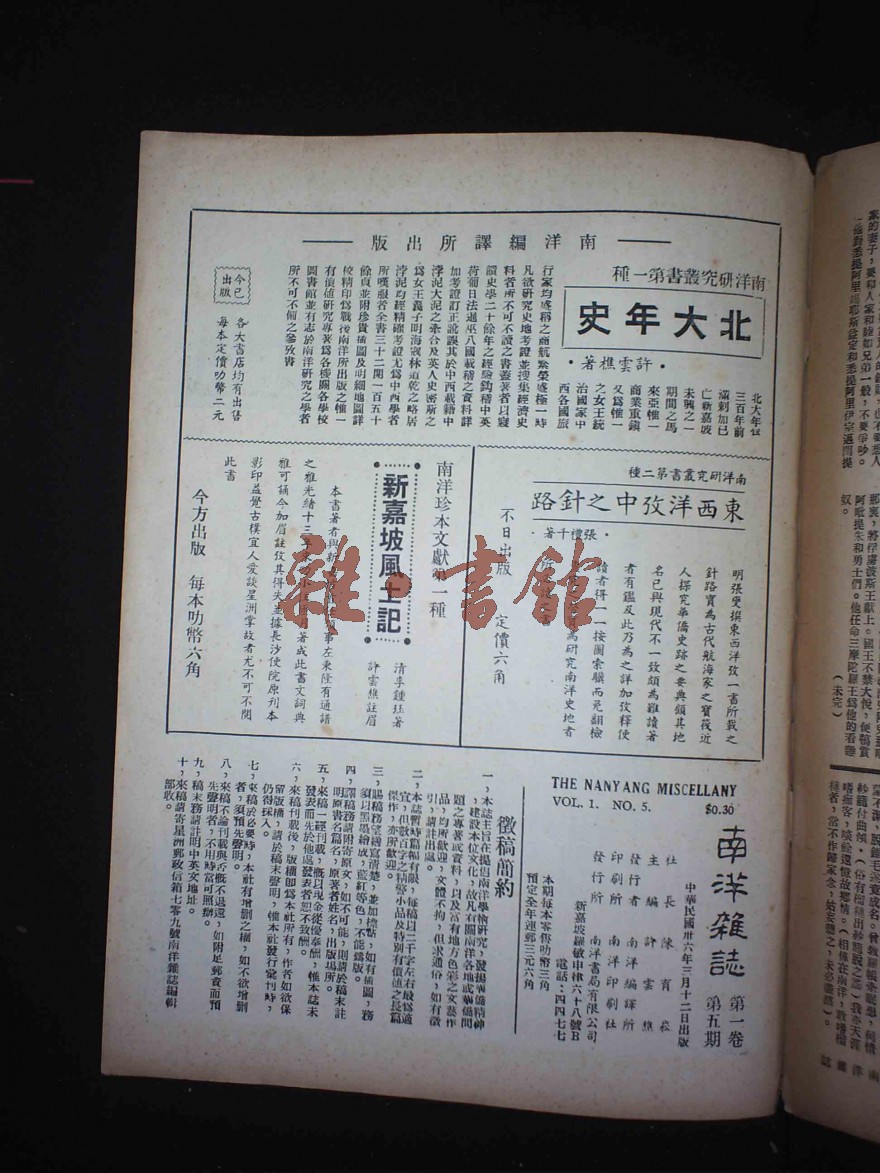 南洋編譯所出版
南洋研究叢書第一種
北大年史
·許雲樵著·
北大年位
三百年前
滿剌加已
亡新嘉坡
未興之一
期間之馬
來亞惟一
商業重鎮
又爲惟一
之女王統
治國家中
西各國旅
行家均盛稱之商航繁榮盛極一時
凡欲研究史地考證並搜集經濟史
料者所不可不讀之書叢著者以寢
饋史學二十餘年之經驗鈎稽中英
荷葡日法暹巫八國載稽之資料詳
加考證訂正訛誤其於中西載籍中
浡泥大泥之牽合及英人史密斯之
爲女王義子明海寇林道乾之略居
浡泥均經精確考證尤爲中西學者
所嘆服者全書三十二開一百五十
餘頁並附珍貴插圖及明細地圖詳
校精印爲戰後南洋所出版之惟一
有價値研究專著爲各機關各學校
圖書館並有志於南洋研究之學者
所不可不備之參攷書
今已出版
各大書店均有出售
每本定價叻幣二元
南洋研究叢書第二種
東西洋攷中之針路
·張禮千著·
明張燮撰東西洋攷一書所載之
針路實爲古代航海家之寶筏近
人探究華僑史跡之要典顧其地
名已與現代不一致頗爲難讀著
者有鑑及此乃爲之詳加攷釋使
讀者得一一按圖索驥而免翻檢
爲研究南洋史地者
所
不日出版
定價六角
南洋珍本文獻第一種
新嘉坡風土記
清李鍾珏著
許雲樵註眉
本書著者與新
事左秉隆有通譜
之雅光緒十三年
著成此書文詞典
雅可誦今加眉註攷其得失並據長沙使院原刊本
影印益覺古樸宜人愛談星洲掌故者尤不可不閱
此書
今方出版
每本叻幣六角
THE NANYANG MISCELLANY
VOL. 1. NO. 5.
$0.30
南洋雜誌
第一卷
第五期
中華民國卅六年三月十二日出版
社長 陳育崧
主編 許雲樵
發行者 南洋編譯所
印刷所 南洋印刷社
發行所 南洋書局有限公司
新嘉坡羅敏申律六十八號B
電話:四四七七
本期每本零售叻幣三角
預定全年連郵三元六角
徵稿簡約
一,本誌主旨在提倡南洋學術研究,發揚華僑精神
,建設本位文化,故凡有關南洋各地或華僑問
題之專著或資料,以及富有地方色彩之文藝作
品,均所歡迎,文體不拘,但求通俗,如有徵
引,請註出處。
二,本誌暫時篇幅有限,每稿以二千字左右最爲適
宜,但數百字之精警小品及特別有價值之長篇
傑作,亦所歡迎。
三,賜稿務望繕寫清楚,並加標點,如有插圖,務
須以黑墨繪成,藍紅等色,不能製版。
四,譯稿務請附寄原文,如不可能,則請於稿末註
明原書名篇名,原著者姓名,出版場所。
五,來稿一經刊載,概以現金從優奉酬,惟本誌未
發表而先於他處發表者恕不致酬。
六,來稿刊載後,版權卽爲本社所有,作者如欲保
留版權,請於稿末聲明,惟本社發行彙刊時,
仍得採入。
七,來稿於必要時,本社有增删之權,如不欲增删
者,須預先聲明。
八,來稿不論刊載與否概不退還,如附足郵資而預
先聲明者,不用時當可照辦。
九,稿末務請註明中英文地址。
十,來稿請寄星洲郵政信箱七零九號南洋雜誌編輯
部收。
家的妻子,要和人家和睦如兄弟一般,不要爭吵。
那裏,將俘虜波斯王獻上。國王不禁大悅,便犒賞
阿毗提朱和勇士們。他任命三摩陀羅王爲他的看臺
奴。
(未完)
南洋雜誌
雜·書館